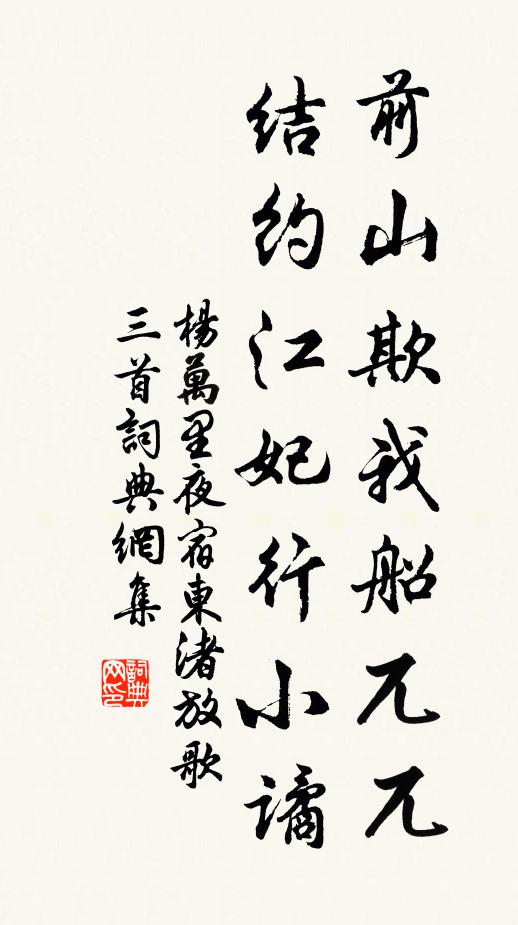 前山欺我船兀兀
结约江妃行小谲
楊萬里夜宿東渚放歌
三首詞典網集
詞典网印